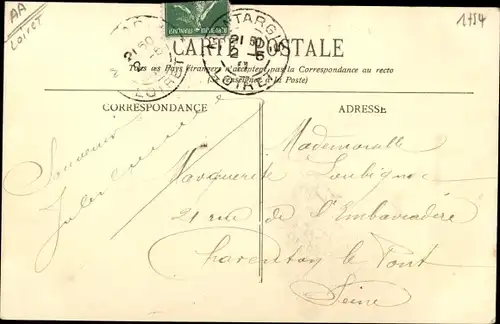 AA
Loiret
1754
MONTARGIS
21 50
2 -5
LOIRET
CARTE POSTALE
Tous les Pays étrangers n'acceptent pas la Correspondance au recto
(Se renseigner à la Poste)
CORRESPONDANCE
ADRESSE
Souvenir
Mademoiselle
Marguerite Loubignac
21 rue de l'Embarcadère
Charenton le Pont
Seine